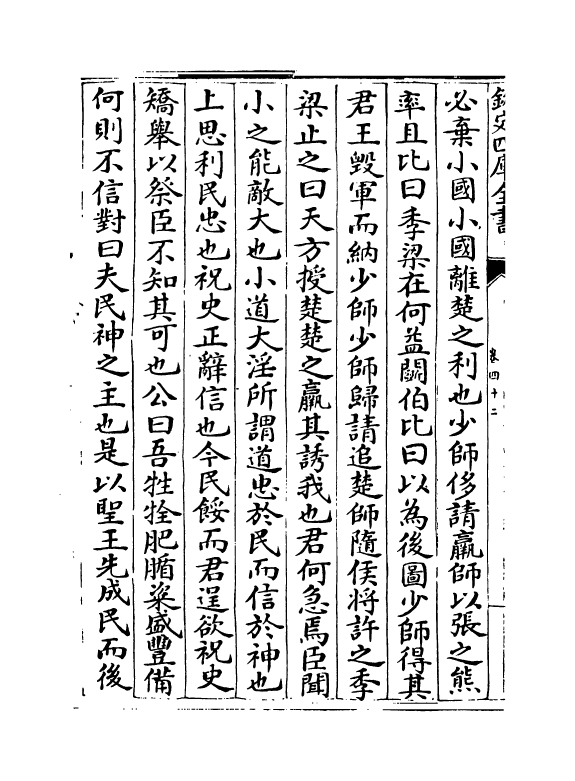 欽定四庫全書
卷四十二
必棄小國小國離楚之利也少師侈請羸師以張之熊
率且比曰季梁在何益鬭伯比曰以為後圖少師得其
君王毀軍而納少師少師歸請追楚師隨侯將許之季
梁止之曰天方授楚楚之羸其誘我也君何急焉臣聞
小之能敵大也小道大淫所謂道忠於民而信於神也
上思利民忠也祝史正辭信也今民餒而君逞欲祝史
矯舉以祭臣不知其可也公曰吾牲牷肥腯粢盛豐備
何則不信對曰夫民神之主也是以聖王先成民而後